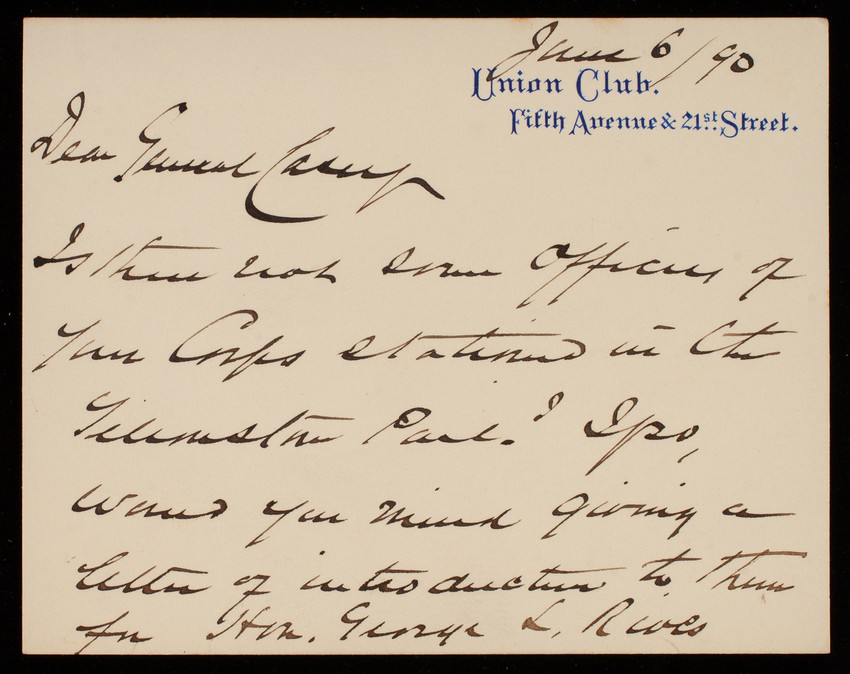 June 6/90
Union Club.
Fifth Avenue & 21st. Street.
Dear General Casey
Is there not some officer of
your Corps stationed in the
Yellowstone Park? If so,
would you mind giving a
letter of introduction to them
for Hon. George L. Rives